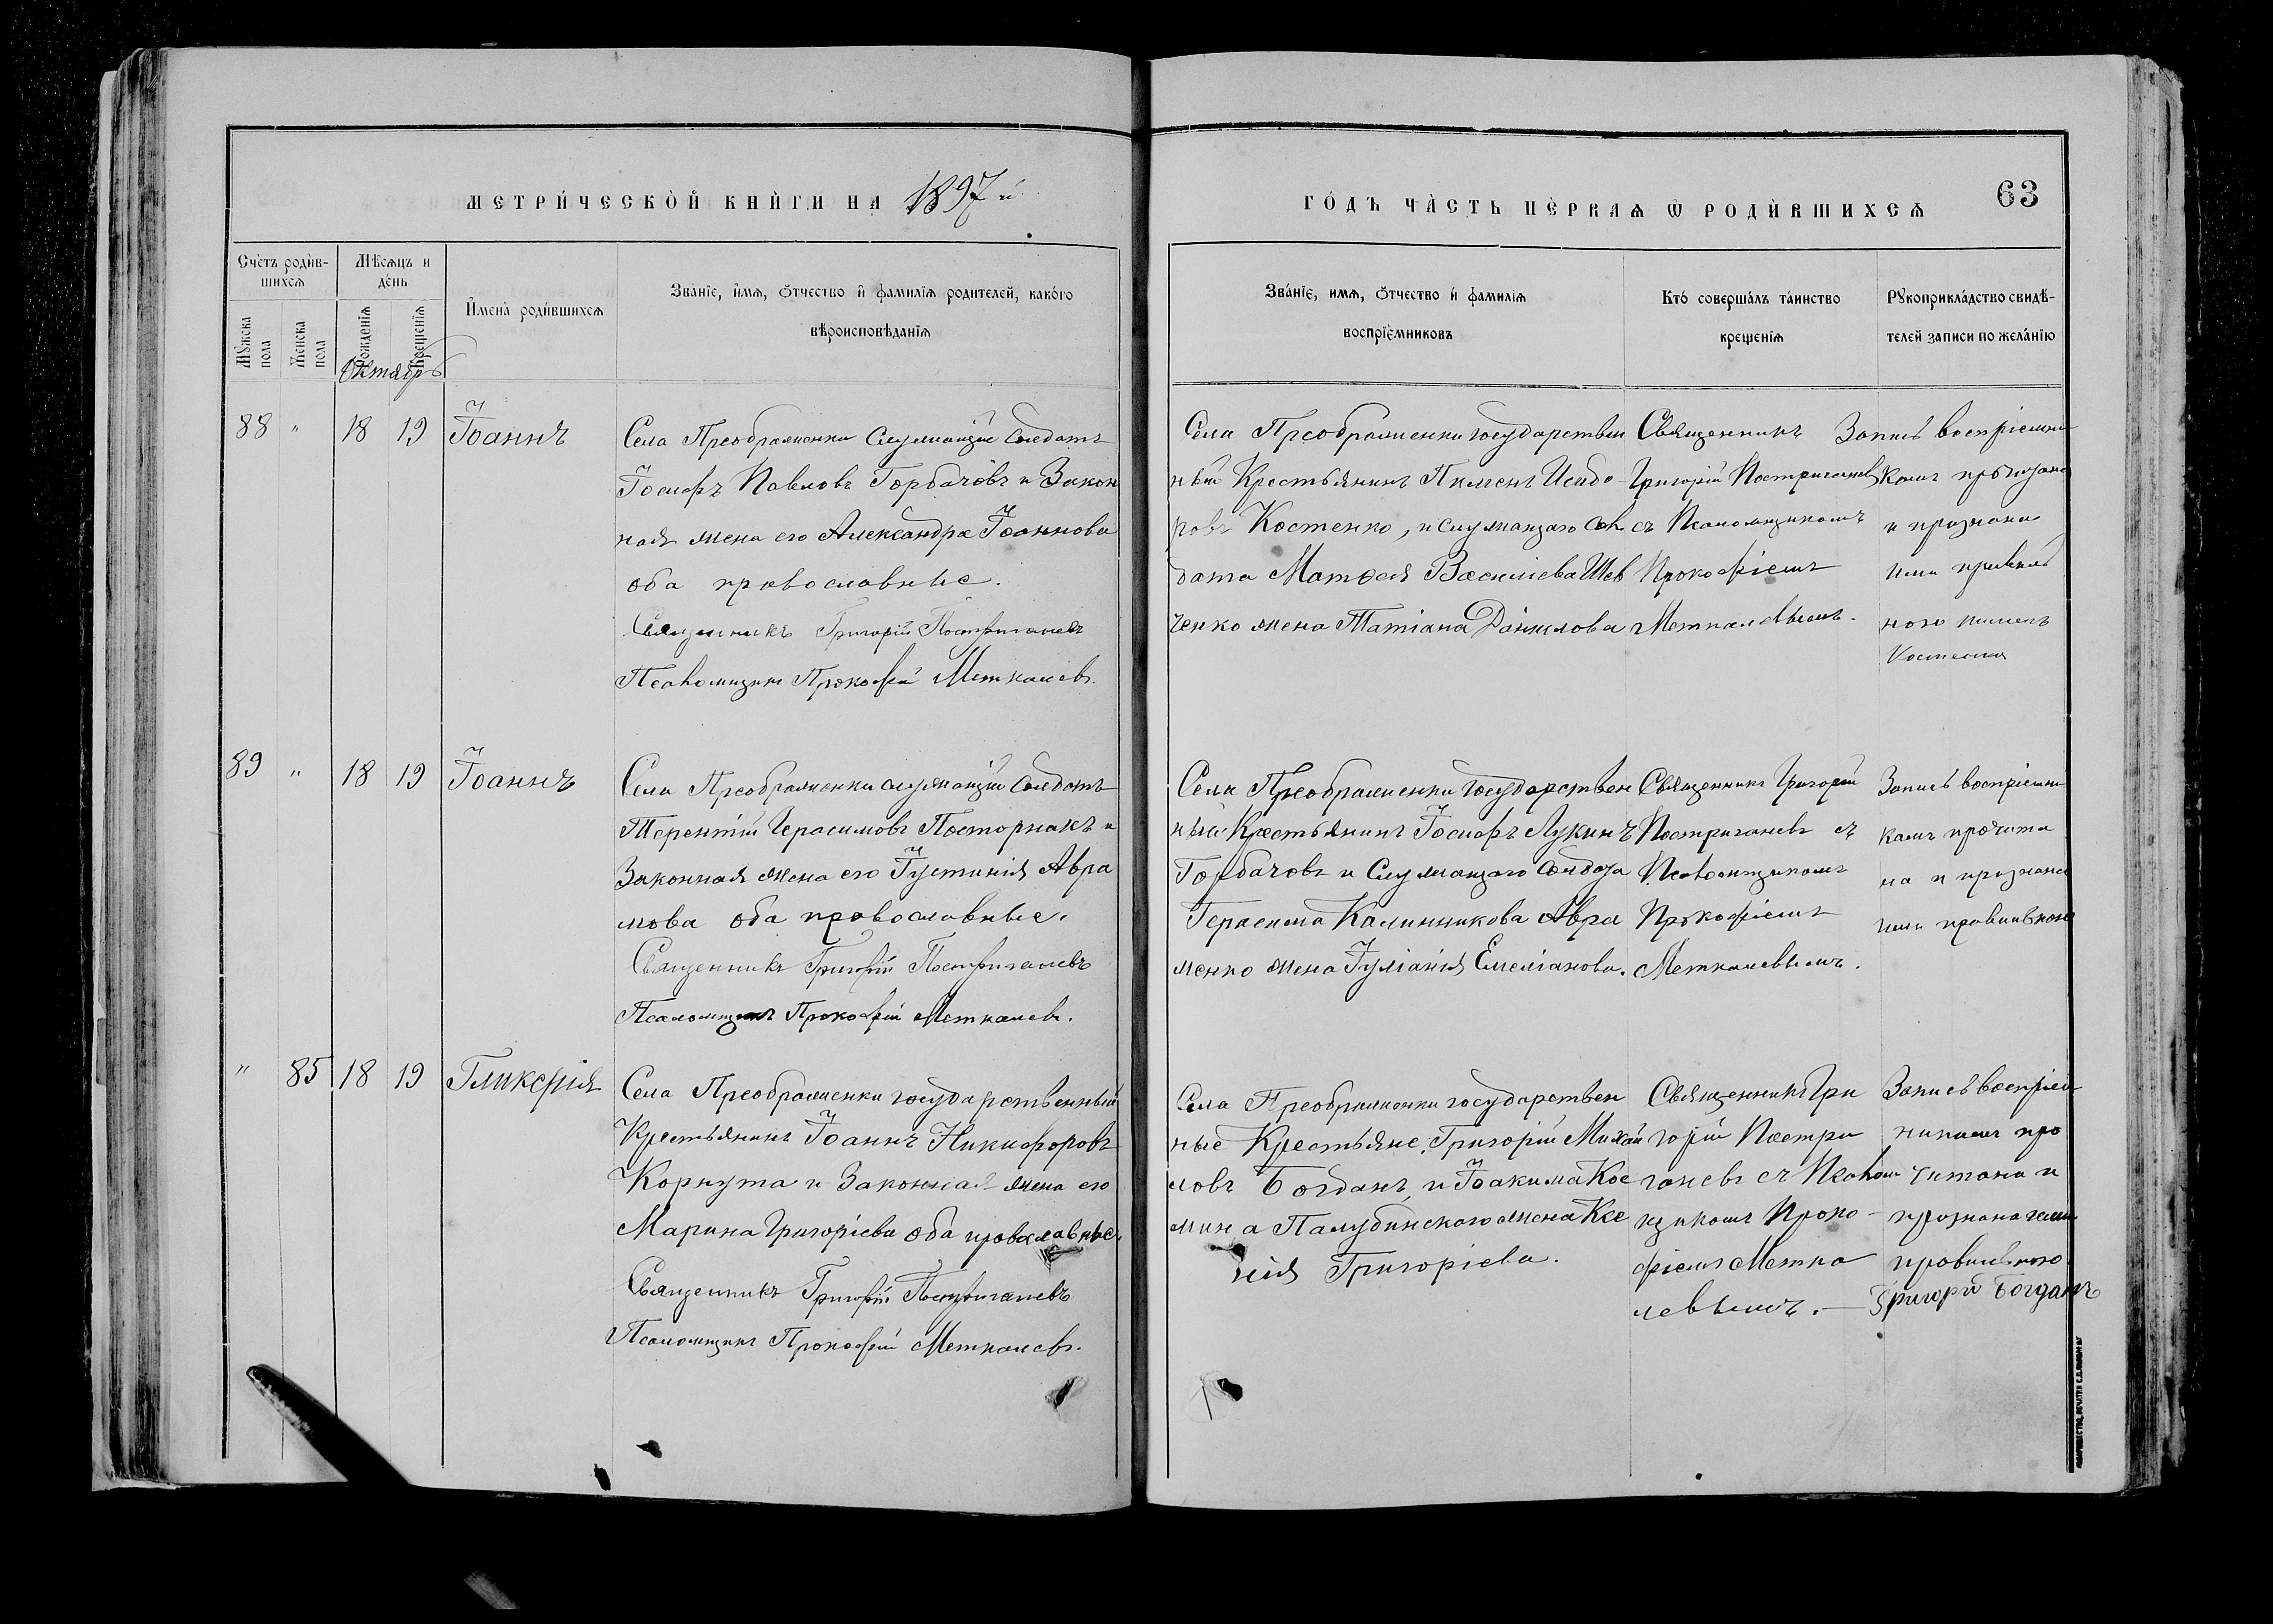 МЕТРИ́ЧЕСКОЙ КНИ́ГИ НА 1897 й
ГО́ДЪ ЧА́СТЬ ПЕ́РВАѦ Ѡ РОДИ́ВШИХСѦ
63
Сче́тъ роди́в-
шихсѧ
Мѣ́сѧцъ и
де́нь
Мꙋжска
пола
Женска
пола
Рожденїѧ
Крещенїѧ
Имена̀ роди́вшихсѧ
Зва́нїе, и́мѧ, ѻ́тчество и҆ фамилїѧ родителей, како́гѡ
вѣроисповѣ́данїѧ
Зва́нїе, имѧ, ѻ́тчество и҆ фамилїѧ
воспрїе́мниковъ
Кто̀ соверша́лъ та́инство
крещенїѧ
Рꙋкоприкла́дство свидѣ́-
телей записи по жела́нїю
Октябрь
88 " 18 19 Іоаннъ
Села Преображенки служащій солдатъ
Іосифъ Павловъ Горбачовъ и Закон
ная жена его Александра Іоаннова
оба православные.
Священникъ Григорій Постригачевъ
Псаломщикъ Прокофій Меткалевъ.
Села Преображенки государствен
ный Крестьянинъ Пименъ Исидо
ровъ Костенко, и служащаго сол
дата Матвея Василіева Шев
ченко жена Татіана Данилова
Священникъ
Григорій Постригачевъ
съ Псаломщикомъ
Прокофіемъ
Меткалевымъ.
Запись воспріемни
камъ прочитана
и признана
ими правиль
ною Пименъ
Костенко
89 " 18 19 Іоаннъ
Села Преображенки служащій солдатъ
Терентій Герасимовъ Пасторнакъ и
Законная жена его Іустинія Авра
мова оба православные.
Священникъ Григорій Постригачевъ
Псаломщикъ Прокофій Меткалевъ.
Села Преображенки Государствен
ный Крестьянинъ Іосифъ Лукинъ
Горбачовъ и Служащаго солдата
Герасима Калинникова Авра
менко жена Іуліанія Емеліанова.
Священникъ Григорій
Постригачевъ съ
Псаломщикомъ
Прокофіемъ
Меткалевымъ.
Запись воспріемни
камъ прочита
на и признана
ими правильною
" 85 18 19 Гликерія
Села Преображенки государственный
Крестьянинъ Іоаннъ Никифоровъ
Корнута и Законная жена его
Марина Григоріева оба православные.
Священникъ Григорій Постригачевъ
Псаломщикъ Прокофій Меткалевъ.
Села Преображенки государствен
ные Крестьяне, Григорій Михаи
ловъ Богданъ, и Іоакима Кос
мина Палубинскаго жена Ксе
нія Григоріева.
Священникъ Гри
горій Постри
гачевъ съ Псалом
щикомъ Проко-
фіемъ Метка
левымъ. —
Запись воспріем
никамъ про
читана и
признана ими
правильною
Григорій Богданъ